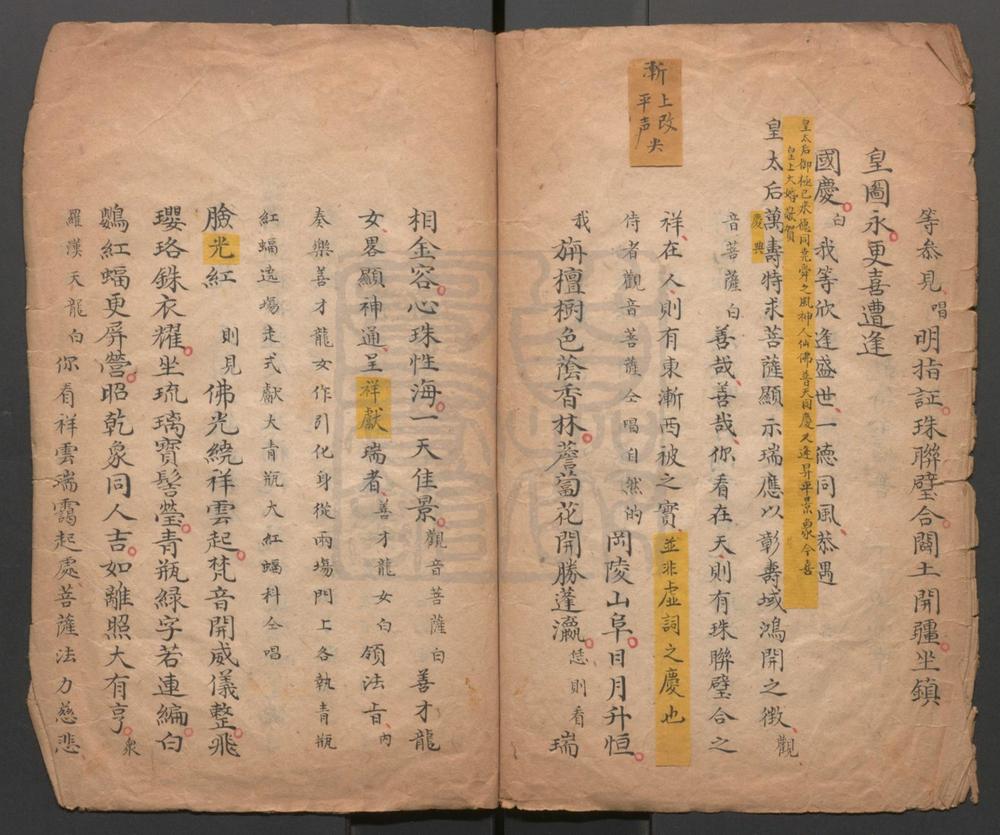 等叅見唱明指証珠聯璧合闢土開疆坐鎮
皇圖永更喜遭逢
國慶白我等欣逢盛世一德同風恭遇
皇太后御極已來德同堯舜之風神人仙佛普天同慶又逢昇平景象今喜
皇上大婚敬賀
慶典
皇太后萬壽特求菩薩顯示瑞應以彰壽域鴻開之徵觀
音菩薩白善哉善哉你看在天則有珠聯璧合之
祥在人則有東漸西被之實並非虛詞之慶也
漸上改尖
平声
侍者觀音菩薩仝唱自然的岡陵山阜日月升恒
我旃檀樹色蔭香林薝蔔花開勝蓬瀛恁則看瑞
相金容心珠性海一天佳景觀音菩薩白善才龍
女畧顯神通呈祥獻瑞者善才龍女白領法旨內
奏樂善才龍女作引化身從兩塲門上各執青瓶
紅蝠遶塲走式獻大青瓶大紅蝠科仝唱
臉光紅則見佛光繞祥雲起梵音開威儀整飛
瓔珞銖衣耀坐琉璃寶髻瑩青瓶綠字若連編白
鸚紅蝠更屏營昭乾象同人吉如離照大有亨衆
羅漢天龍白你看祥雲瑞靄起處菩薩法力慈悲